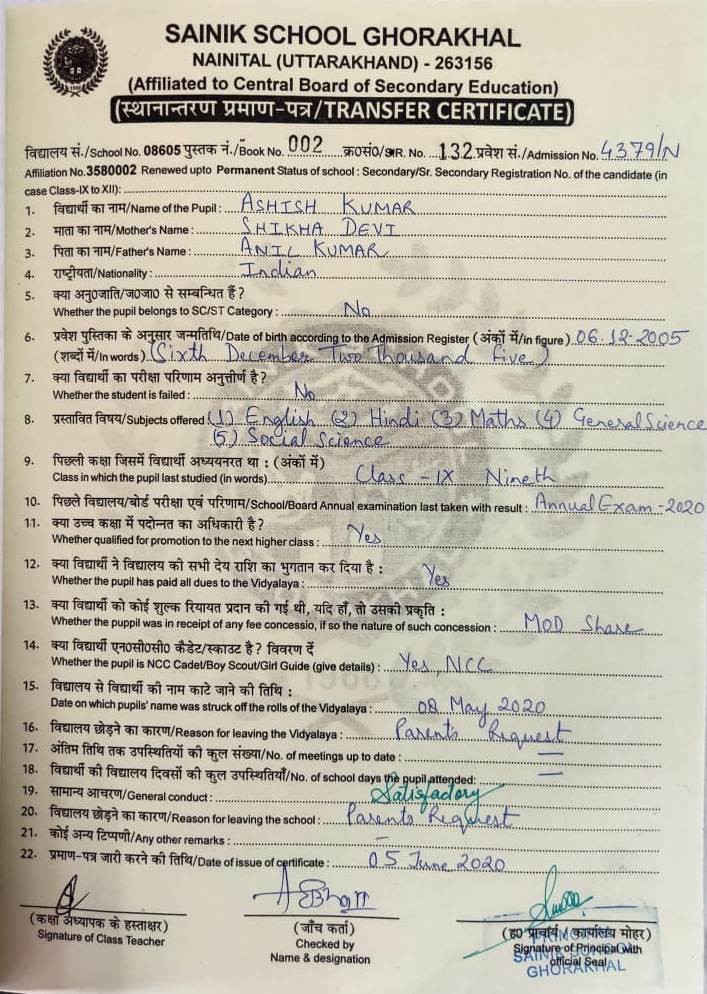 SAINIK SCHOOL GHORAKHAL
NAINITAL (UTTARAKHAND) - 263156
(Affiliated to Central Board of Secondary Education)
(स्थानान्तरण प्रमाण-पत्र/TRANSFER CERTIFICATE)
विद्यालय सं./School No. 08605 पुस्तक नं./Book No. 002 क्र०सं०/SR. No. 132 प्रवेश सं./Admission No. 4379/N
Affiliation No.3580002 Renewed upto Permanent Status of school : Secondary/Sr. Secondary Registration No. of the candidate (in
case Class-IX to XII):
1. विद्यार्थी का नाम/Name of the Pupil : ASHISH KUMAR
2. माता का नाम/Mother's Name : SHIKHA DEVI
3. पिता का नाम/Father's Name : ANIL KUMAR
4. राष्ट्रीयता/Nationality : Indian
5. क्या अनु०जाति/ज०जा० से सम्बन्धित हैं?
Whether the pupil belongs to SC/ST Category : No
6. प्रवेश पुस्तिका के अनुसार जन्मतिथि/Date of birth according to the Admission Register (अंकों में/in figure) 06.12.2005
(शब्दों में/In words) (Sixth December Two Thousand Five)
7. क्या विद्यार्थी का परीक्षा परिणाम अनुत्तीर्ण है?
Whether the student is failed : No
8. प्रस्तावित विषय/Subjects offered (1) English (2) Hindi (3) Maths (4) General Science
(5) Social Science
9. पिछली कक्षा जिसमें विद्यार्थी अध्ययनरत था : (अंकों में)
Class in which the pupil last studied (in words) Class - IX Nineth
10. पिछले विद्यालय/बोर्ड परीक्षा एवं परिणाम/School/Board Annual examination last taken with result : Annual Exam - 2020
11. क्या उच्च कक्षा में पदोन्नत का अधिकारी है?
Whether qualified for promotion to the next higher class : Yes
12. क्या विद्यार्थी ने विद्यालय की सभी देय राशि का भुगतान कर दिया है :
Whether the pupil has paid all dues to the Vidyalaya : Yes
13. क्या विद्यार्थी को कोई शुल्क रियायत प्रदान की गई थी, यदि हाँ, तो उसकी प्रकृति :
Whether the puppil was in receipt of any fee concessio, if so the nature of such concession : MOD Share
14. क्या विद्यार्थी एन०सी०सी० कैडेट/स्काउट है? विवरण दें
Whether the pupil is NCC Cadet/Boy Scout/Girl Guide (give details) : Yes, NCC
15. विद्यालय से विद्यार्थी की नाम काटे जाने की तिथि :
Date on which pupils' name was struck off the rolls of the Vidyalaya : 08 May 2020
16. विद्यालय छोड़ने का कारण/Reason for leaving the Vidyalaya : Parents Request
17. अंतिम तिथि तक उपस्थितियों की कुल संख्या/No. of meetings up to date : —
18. विद्यार्थी की विद्यालय दिवसों की कुल उपस्थितियाँ/No. of school days the pupil attended: —
19. सामान्य आचरण/General conduct : Satisfactory
20. विद्यालय छोड़ने का कारण/Reason for leaving the school : Parents Request
21. कोई अन्य टिप्पणी/Any other remarks : —
22. प्रमाण-पत्र जारी करने की तिथि/Date of issue of certificate : 05 June 2020
(कक्षा अध्यापक के हस्ताक्षर)
Signature of Class Teacher
(जाँच कर्ता)
Checked by
Name & designation
(ह० प्राचार्य कार्यालय मोहर)
Signature of Principal with
official Seal
GHORAKHAL